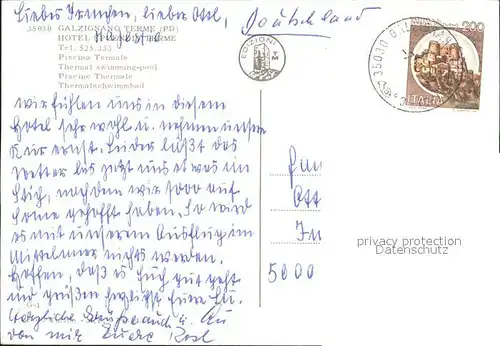 Liebes Irmchen, lieber Ottl, Deutschland
35030 GALZIGNANO TERME (PD)
HOTEL SPLENDID TERME
Tel. 525.333
Piscina Termale
Thermal swimming-pool
Piscine Thermale
Thermalschwimmbad
EDIZIONI TM
35030 G
200
ITALIA
wir fühlen uns in diesem
Hotel sehr wohl u. nehmen unsere
Kur ernst. Leider läßt das
Wetter bis jetzt uns etwas im
Stich, nachdem wir sooo auf
Sonne gehofft haben. So wird
es mit unserem Ausflug im
Mittelmeer nichts werden.
Hoffen, daß es Euch gut geht
und grüßen herzlichst Eure
Herzliche Grüße auch
von mir Eure
G-1
Fam
Ott
5000
privacy protection
Datenschutz